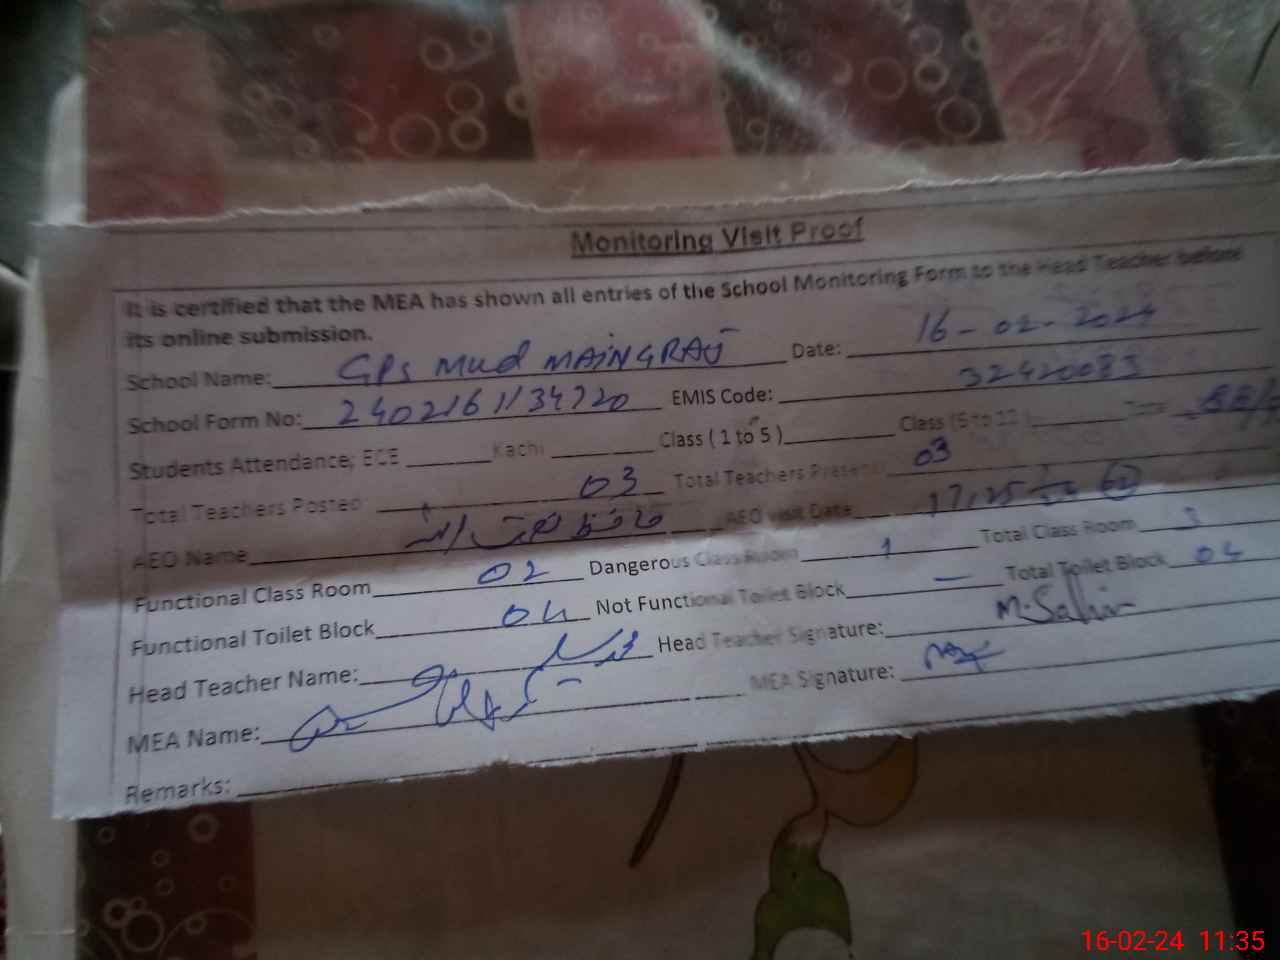 Monitoring Visit Proof
It is certified that the MEA has shown all entries of the School Monitoring Form to the Head Teacher before
its online submission.
School Name: GPS Mud MAINGRAJ Date: 16-02-2024
School Form No: 2402161134720 EMIS Code: 32420083
Students Attendance; ECE Kachi Class ( 1 to 5 ) Class (6 to 12 )
Total Teachers Posted 03 Total Teachers Present 03
AEO Name حافظ نعمت اللہ AEO visit Date
Functional Class Room 02 Dangerous Class Room 1 Total Class Room 3
Functional Toilet Block 04 Not Functional Toilet Block — Total Toilet Block 04
Head Teacher Name: Head Teacher Signature: M. Sabir
MEA Name: MEA Signature:
Remarks:
16-02-24 11:35